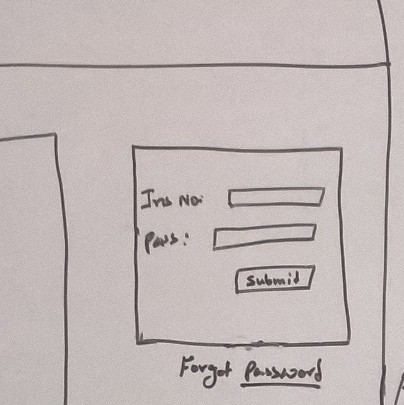 Ins No:
Pass:
Submit
Forgot Password